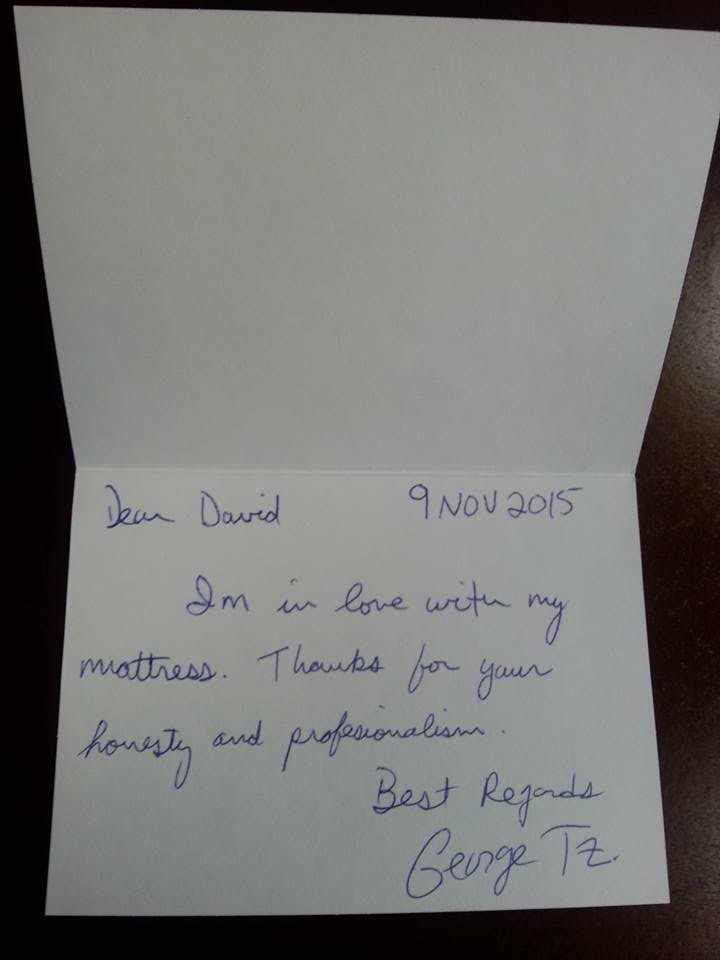 Dear David 9 NOV 2015
Im in love with my
mattress. Thanks for your
honesty and profesionalism.
Best Regards
George Tz.